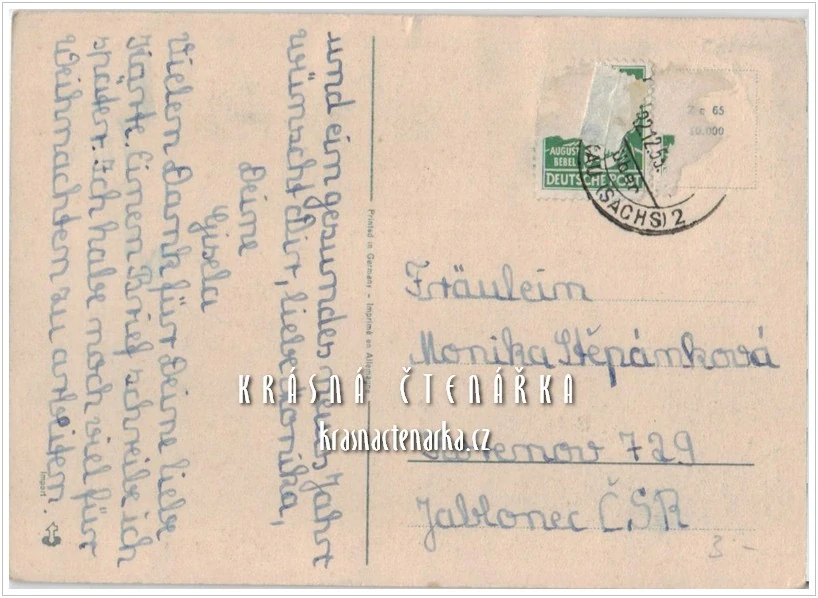 und ein gesundes neues Jahr
wünscht dir, liebe Monika,
Deine
Gisela
Vielen Dank für Deine liebe
Karte. Einen Brief schreibe ich
später. Ich habe noch viel für
Weihnachten zu arbeiten.
Printed in Germany – Imprimé en Allemagne
Import
2 c 65
10.000
AUGUST
BEBEL
DEUTSCHE POST
22.12.55
(SACHS) 2
Fräulein
Monika Štěpánková
729
Jablonec ČSR
3 -
KRÁSNÁ ČTENÁŘKA
krasnactenarka.cz